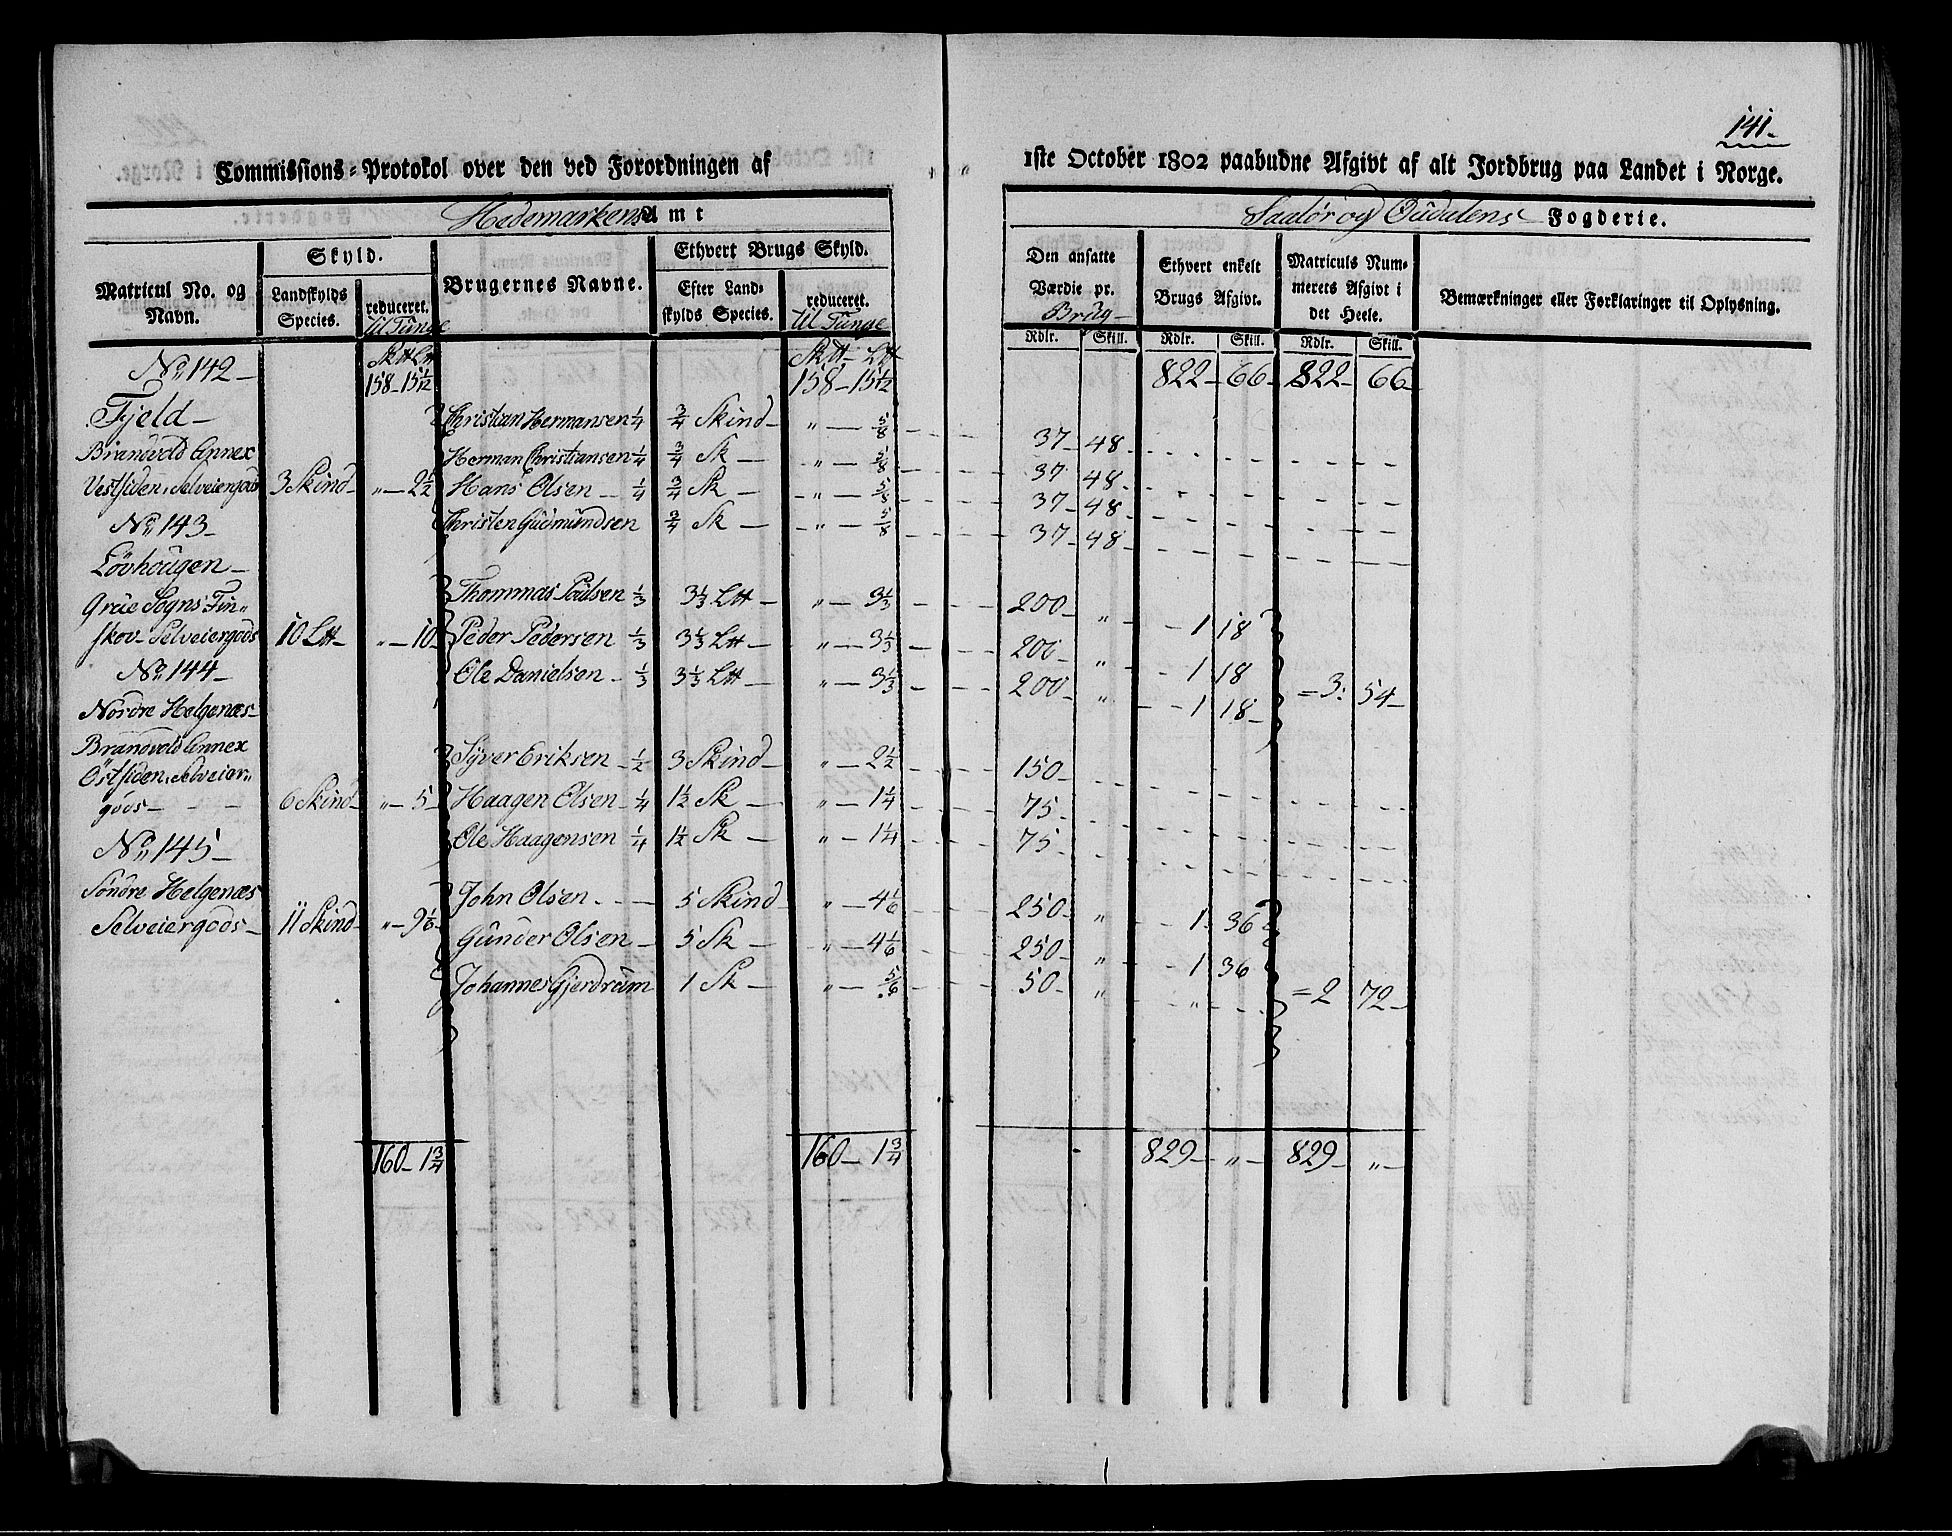 141.
Commissions-Protokol over den ved Forordningen af 1ste October 1802 paabudne Afgivt af alt Jordbrug paa Landet i Norge.
Hedemarkens Amt
Saalör og Oüdalens Fogderie.
Matricul No. og Navn.
Skyld.
Landskylds Species.
reduceret. til Tunge
Brugernes Navne.
Ethvert Brugs Skyld.
Efter Landskylds Species.
reduceret. til Tunge
Den ansatte Værdie pr. Brüg-
Ethvert enkelt Brugs Afgivt.
Matriculs Nummerets Afgivt i det Heele.
Bemærkninger eller Forklaringer til Oplysning.
Rdlr. Skill. Rdlr. Skill. Rdlr. Skill.
Sk℔ L℔ Sk℔ - L℔
158 - 15 1/12 158 - 15 1/12 822 - 66 - 822 - 66 -
No 142 -
Fjeld -
Christian Hermansen 1/4 3/4 Skind - " - 5/8 37 - 48 -
Brandvold Annex
Herman Christiansen 1/4 3/4 Sk - " - 5/8 37 48 -
Vestsiden, Selveiergods 3 Skind - " - 2 1/2 Hans Olsen - 1/4 3/4 Sk - " - 5/8 37 - 48 -
No 143 -
Christen Güdmündsen 3/4 Sk - " - 5/8 37 - 48 -
Lövhoügen -
Grüe Sogns Fin-
Thommas Poülsen 1/3 3 1/3 L℔ - " - 3 1/3 200 - " - 1 18
skov. Selveiergods 10 L℔ - " - 10 - Peder Pedersen 1/3 3 1/3 L℔ - " - 3 1/3 200 - " - 1 18
No 144 -
Ole Danielsen - 1/3 3 1/3 L℔ - " - 3 1/3 200 - " - 1 18 - = 3: 54 -
Nordre Helgenæs -
Brandvold Annex
Syver Eriksen - 1/2 3 Skind - " - 2 1/2 150 -
Östsiden, Selveier-
gods - 6 Skind - " - 5 - Haagen Olsen - 1/4 1 1/2 Sk - " - 1 1/4 75 -
No 145 -
Ole Haagensen 1/4 1 1/2 Sk - " - 1 1/4 75 -
Söndre Helgenæs
John Olsen - 5 Skind " - 4 1/6 250 - " - 1 36
Selveiergods - 11 Skind - " - 9 1/6 - Günder Olsen - 5 Sk - " - 4 1/6 250 - " - 1 36
Johannes Gjerdrüm 1 Sk - " - 5/6 50 - " - " - = 2 72 -
160 - 1 3/4 160 - 1 3/4 829 - " - 829 - " -